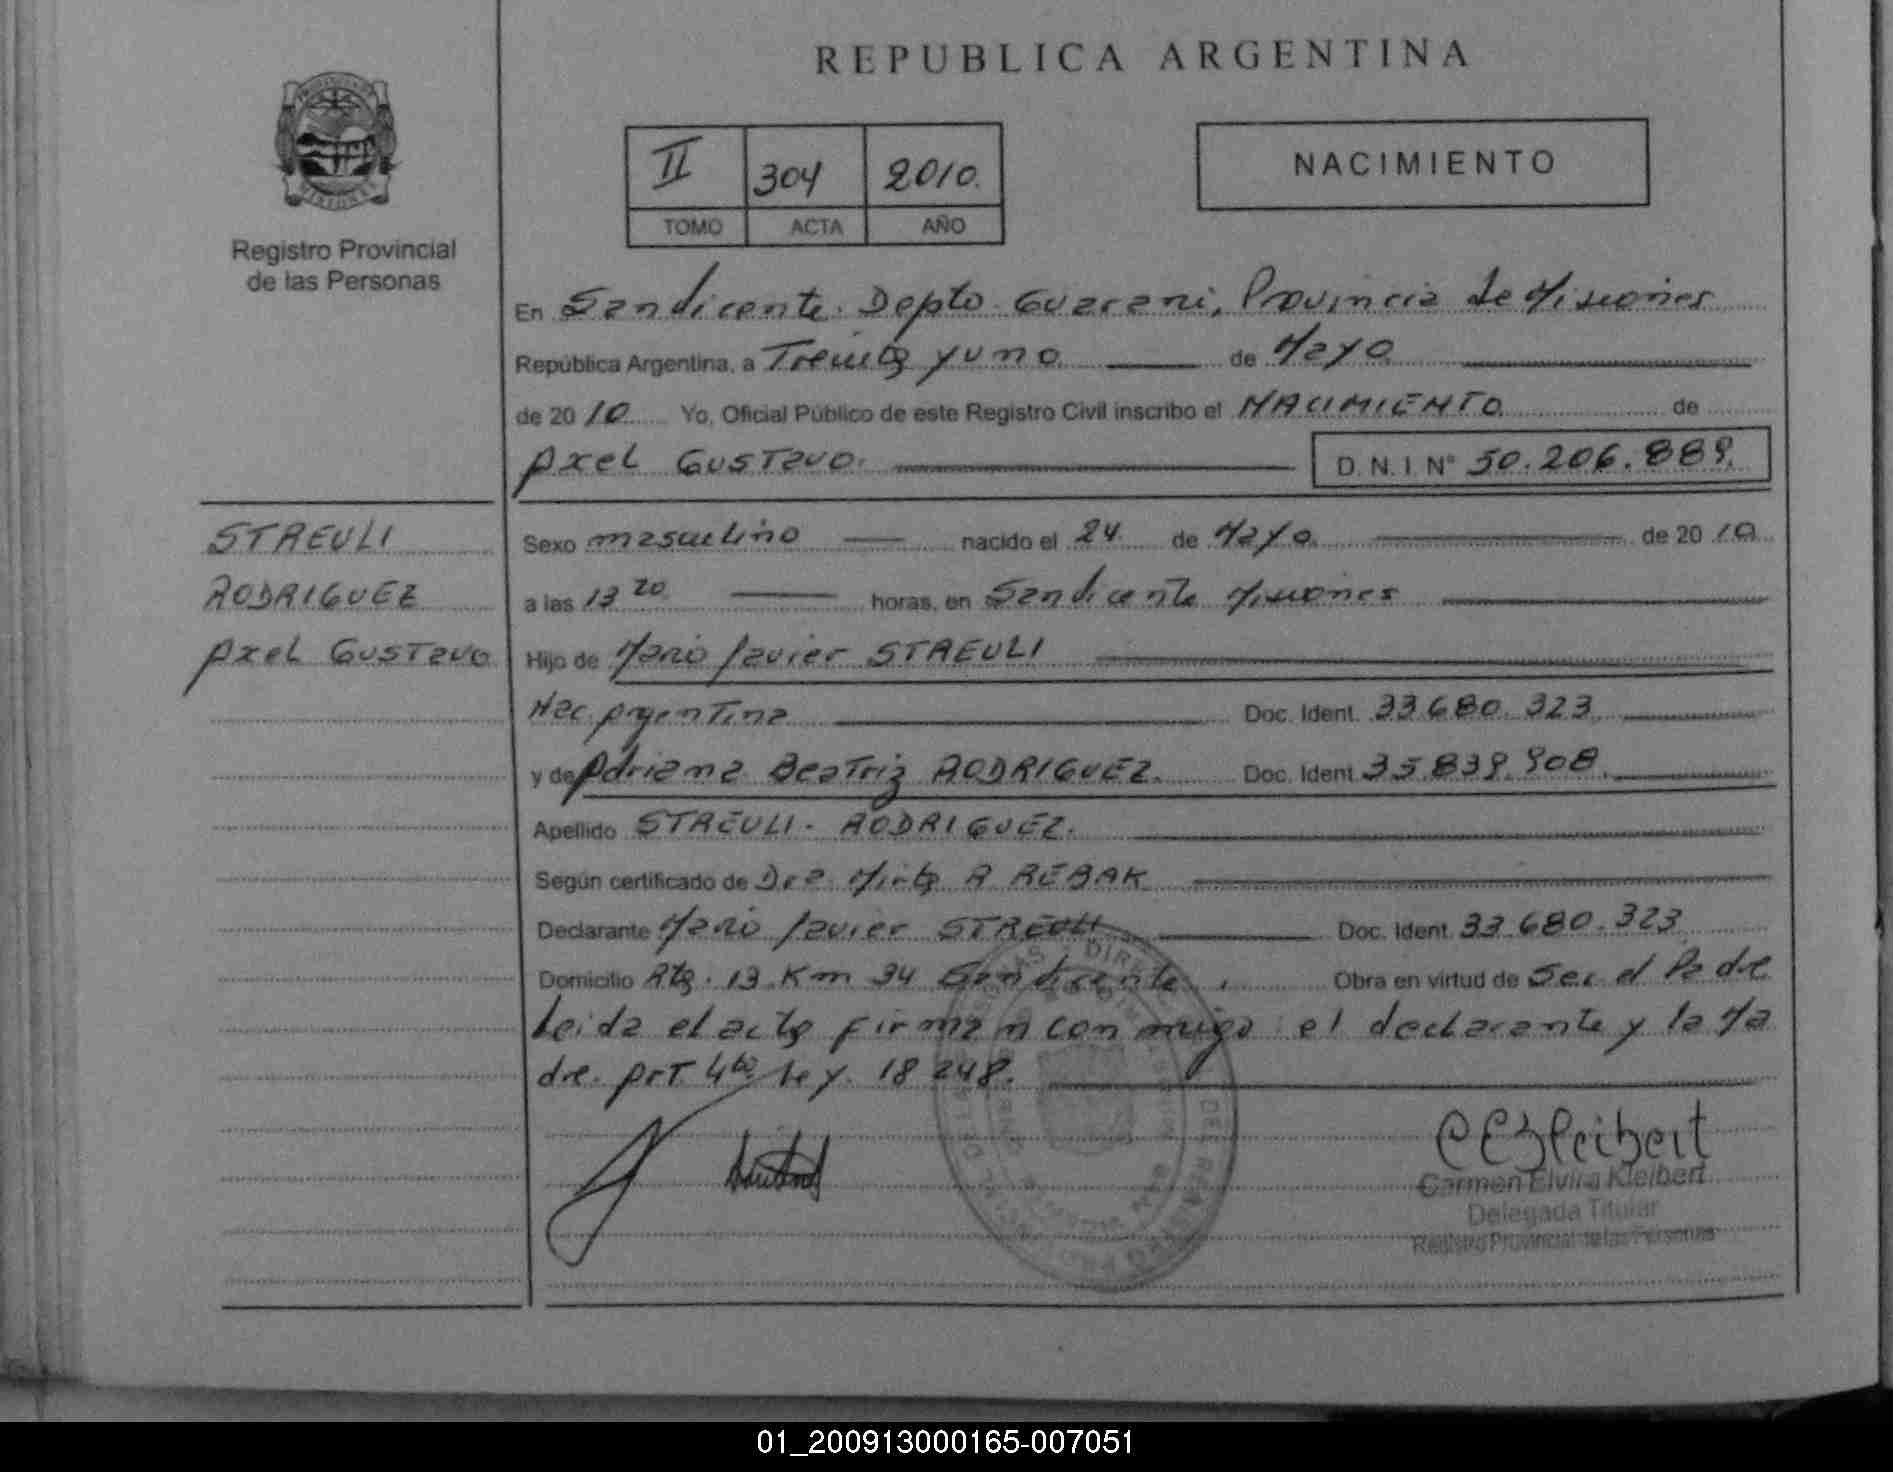 REPUBLICA ARGENTINA
II 304 2010.
TOMO ACTA AÑO
NACIMIENTO
Registro Provincial
de las Personas
En Sanvicente. Depto Guarani, Provincia de Misiones
República Argentina, a Treinta y uno de Mayo
de 2010 Yo, Oficial Público de este Registro Civil inscribo el NACIMIENTO de
Axel GUSTavo. D.N.I. N° 50.206.889.
STREULI
RODRIGUEZ
Axel GUSTavo
Sexo masculino nacido el 24 de Mayo. de 2010
a las 13 20 horas, en Sanvicente Misiones
Hijo de Mario Javier STREULI
Nac. Argentina Doc. Ident. 33.680.323
y de Adriana Beatriz RODRIGUEZ. Doc. Ident. 35.839.908.
Apellido STREULI - RODRIGUEZ.
Según certificado de Dra. Mirta R REBAK
Declarante Mario Javier STREULI Doc. Ident. 33.680.323
Domicilio Rta. 13 Km 34 Sanvicente. Obra en virtud de Ser el Padre
Leida el acta firman con migo el declarante y la Ma
dre. Art. 4to. Ley. 18248.
CEKleibert
Carmen Elvira Kleibert
Delegada Titular
Registro Provincial de las Personas
01_200913000165-007051